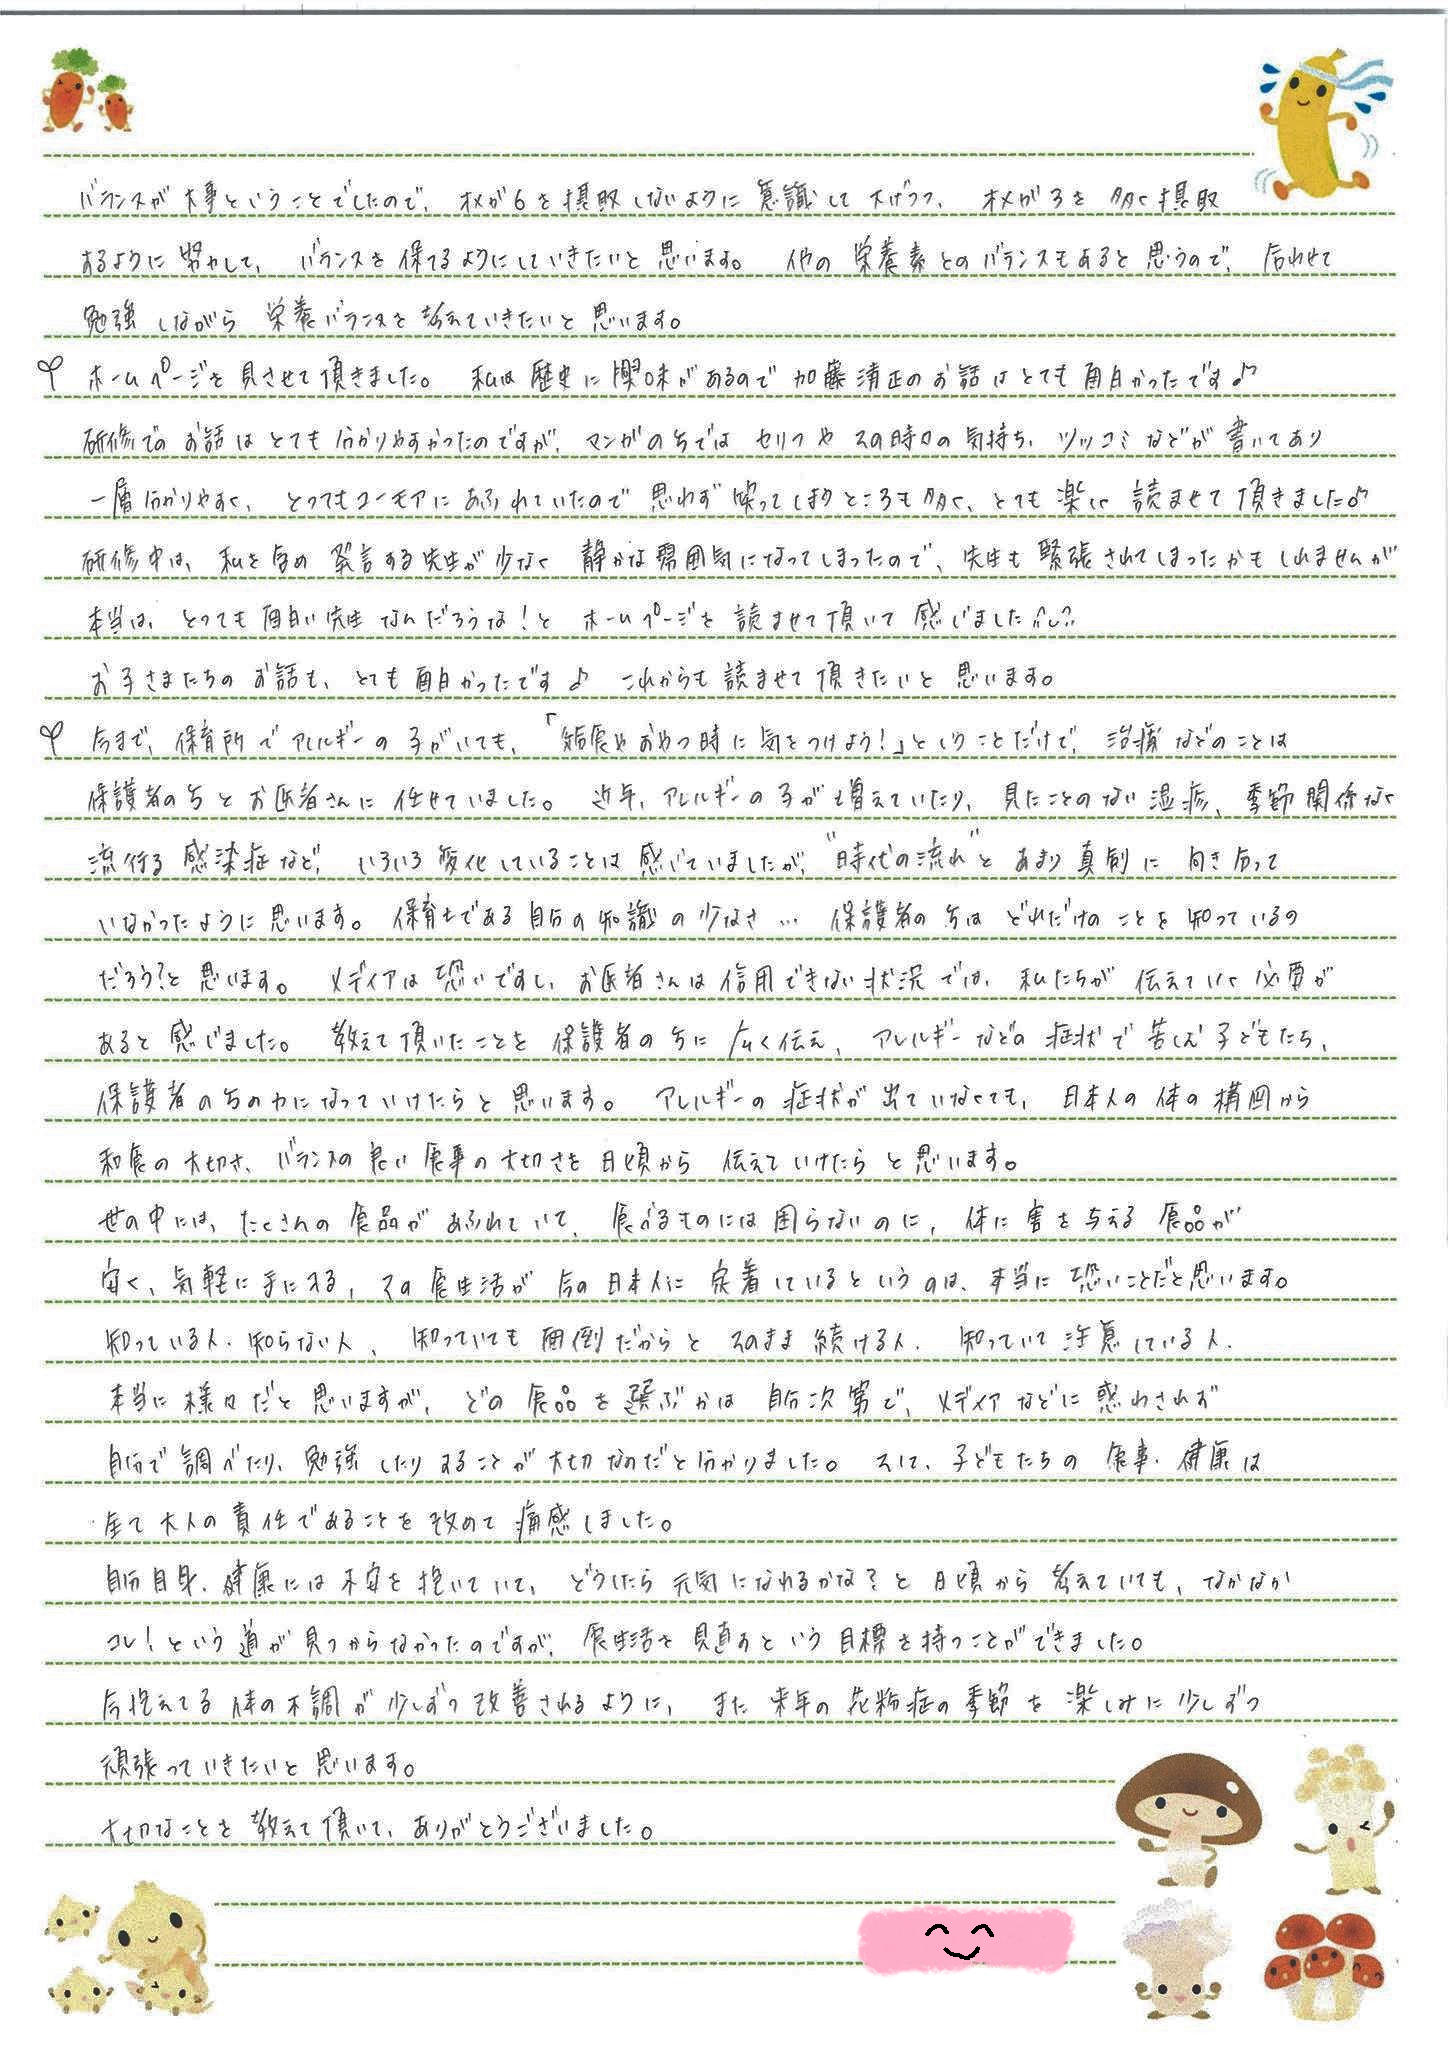 バランスが大事ということでしたので、オメガ6を摂取しないように意識して 大げつつ、オメガ3を多く摂取
あるように努力して、バランスを保てるようにしていきたいと思います。 他の栄養素とのバランスもあると思うので、合わせて
勉強しながら 栄養バランスを考えていきたいと思います。
ホームページを見させて頂きました。 私は歴史に興味があるので加藤清正のお話はとても面白かったです♪
研修でのお話はとても分かりやすかったのですが、マンガの方では セリフやその時々の気持ち、ツッコミなどが書いてあり
一層分かりやすく、とってもユーモアにあふれていたので思わず笑ってしまうところも多く、とても楽しく読ませて頂きました♪
研修中は、私を含め発言する先生が少なく 静かな雰囲気になってしまったので、先生も緊張されてしまったかもしれませんが
本当は、とっても面白い先生なんだろうな!と ホームページを読ませて頂いて感じました^^
お子さまたちのお話も、とても面白かったです♪ これからも読ませて頂きたいと思います。
今まで、保育所でアレルギーの子がいても、「給食やおやつ時に気をつけよう!」ということだけで、治療などのことは
保護者の方とお医者さんに任せていました。 近年、アレルギーの子が増えていたり、見たことのない湿疹、季節関係なく
流行る感染症など、いろいろ変化していることは感じていましたが、"時代の流れ"とあまり真剣に向き合って
いなかったように思います。 保育士である自分の知識の少なさ… 保護者の方は どれだけのことを知っているの
だろう?と思います。 メディアは恐いですし、お医者さんは信用できない状況では、私たちが伝えていく必要が
あると感じました。 教えて頂いたことを保護者の方に広く伝え、アレルギーなどの症状で苦しむ子どもたち、
保護者の方の力になっていけたらと思います。 アレルギーの症状が出ていなくても、日本人の体の構図から
和食の大切さ、バランスの良い食事の大切さを日頃から 伝えていけたらと思います。
世の中には、たくさんの食品があふれていて、食べるものには困らないのに、体に害を与える食品が
安く、気軽に手に入る、その食生活が今の日本人に定着しているというのは、本当に恐いことだと思います。
知っている人・知らない人、知っていても面倒だからとそのまま続ける人・知っていて注意している人・
本当に様々だと思いますが、どの食品を選ぶかは自分次第で、メディアなどに惑わされず
自分で調べたり、勉強したりすることが大切なのだと分かりました。 そして、子どもたちの食事・健康は
全て大人の責任であることを改めて痛感しました。
自分自身、健康には不安を抱いていて、どうしたら元気になれるかな?と日頃から考えていても、なかなか
コレ!という道が見つからなかったのですが、食生活を見直すという目標を持つことができました。
今抱えてる体の不調が少しずつ改善されるように、また来年の花粉症の季節を楽しみに少しずつ
頑張っていきたいと思います。
大切なことを教えて頂いて、ありがとうございました。